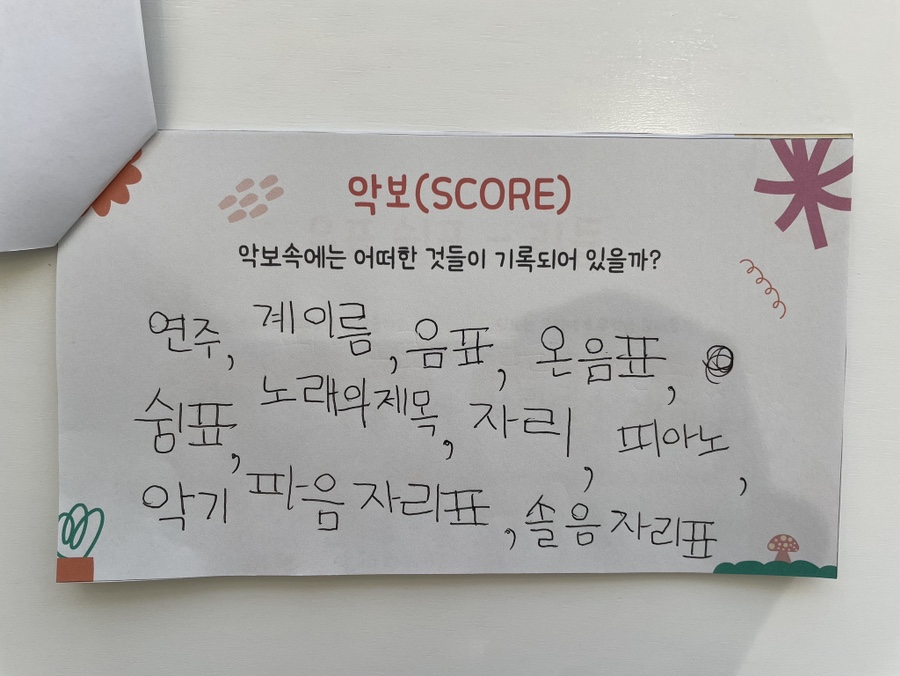 악보(SCORE)
악보속에는 어떠한 것들이 기록되어 있을까?
연주, 계이름, 음표, 온음표,
쉼표, 노래와제목, 자리, 피아노,
악기 파음자리표, 솔음자리표